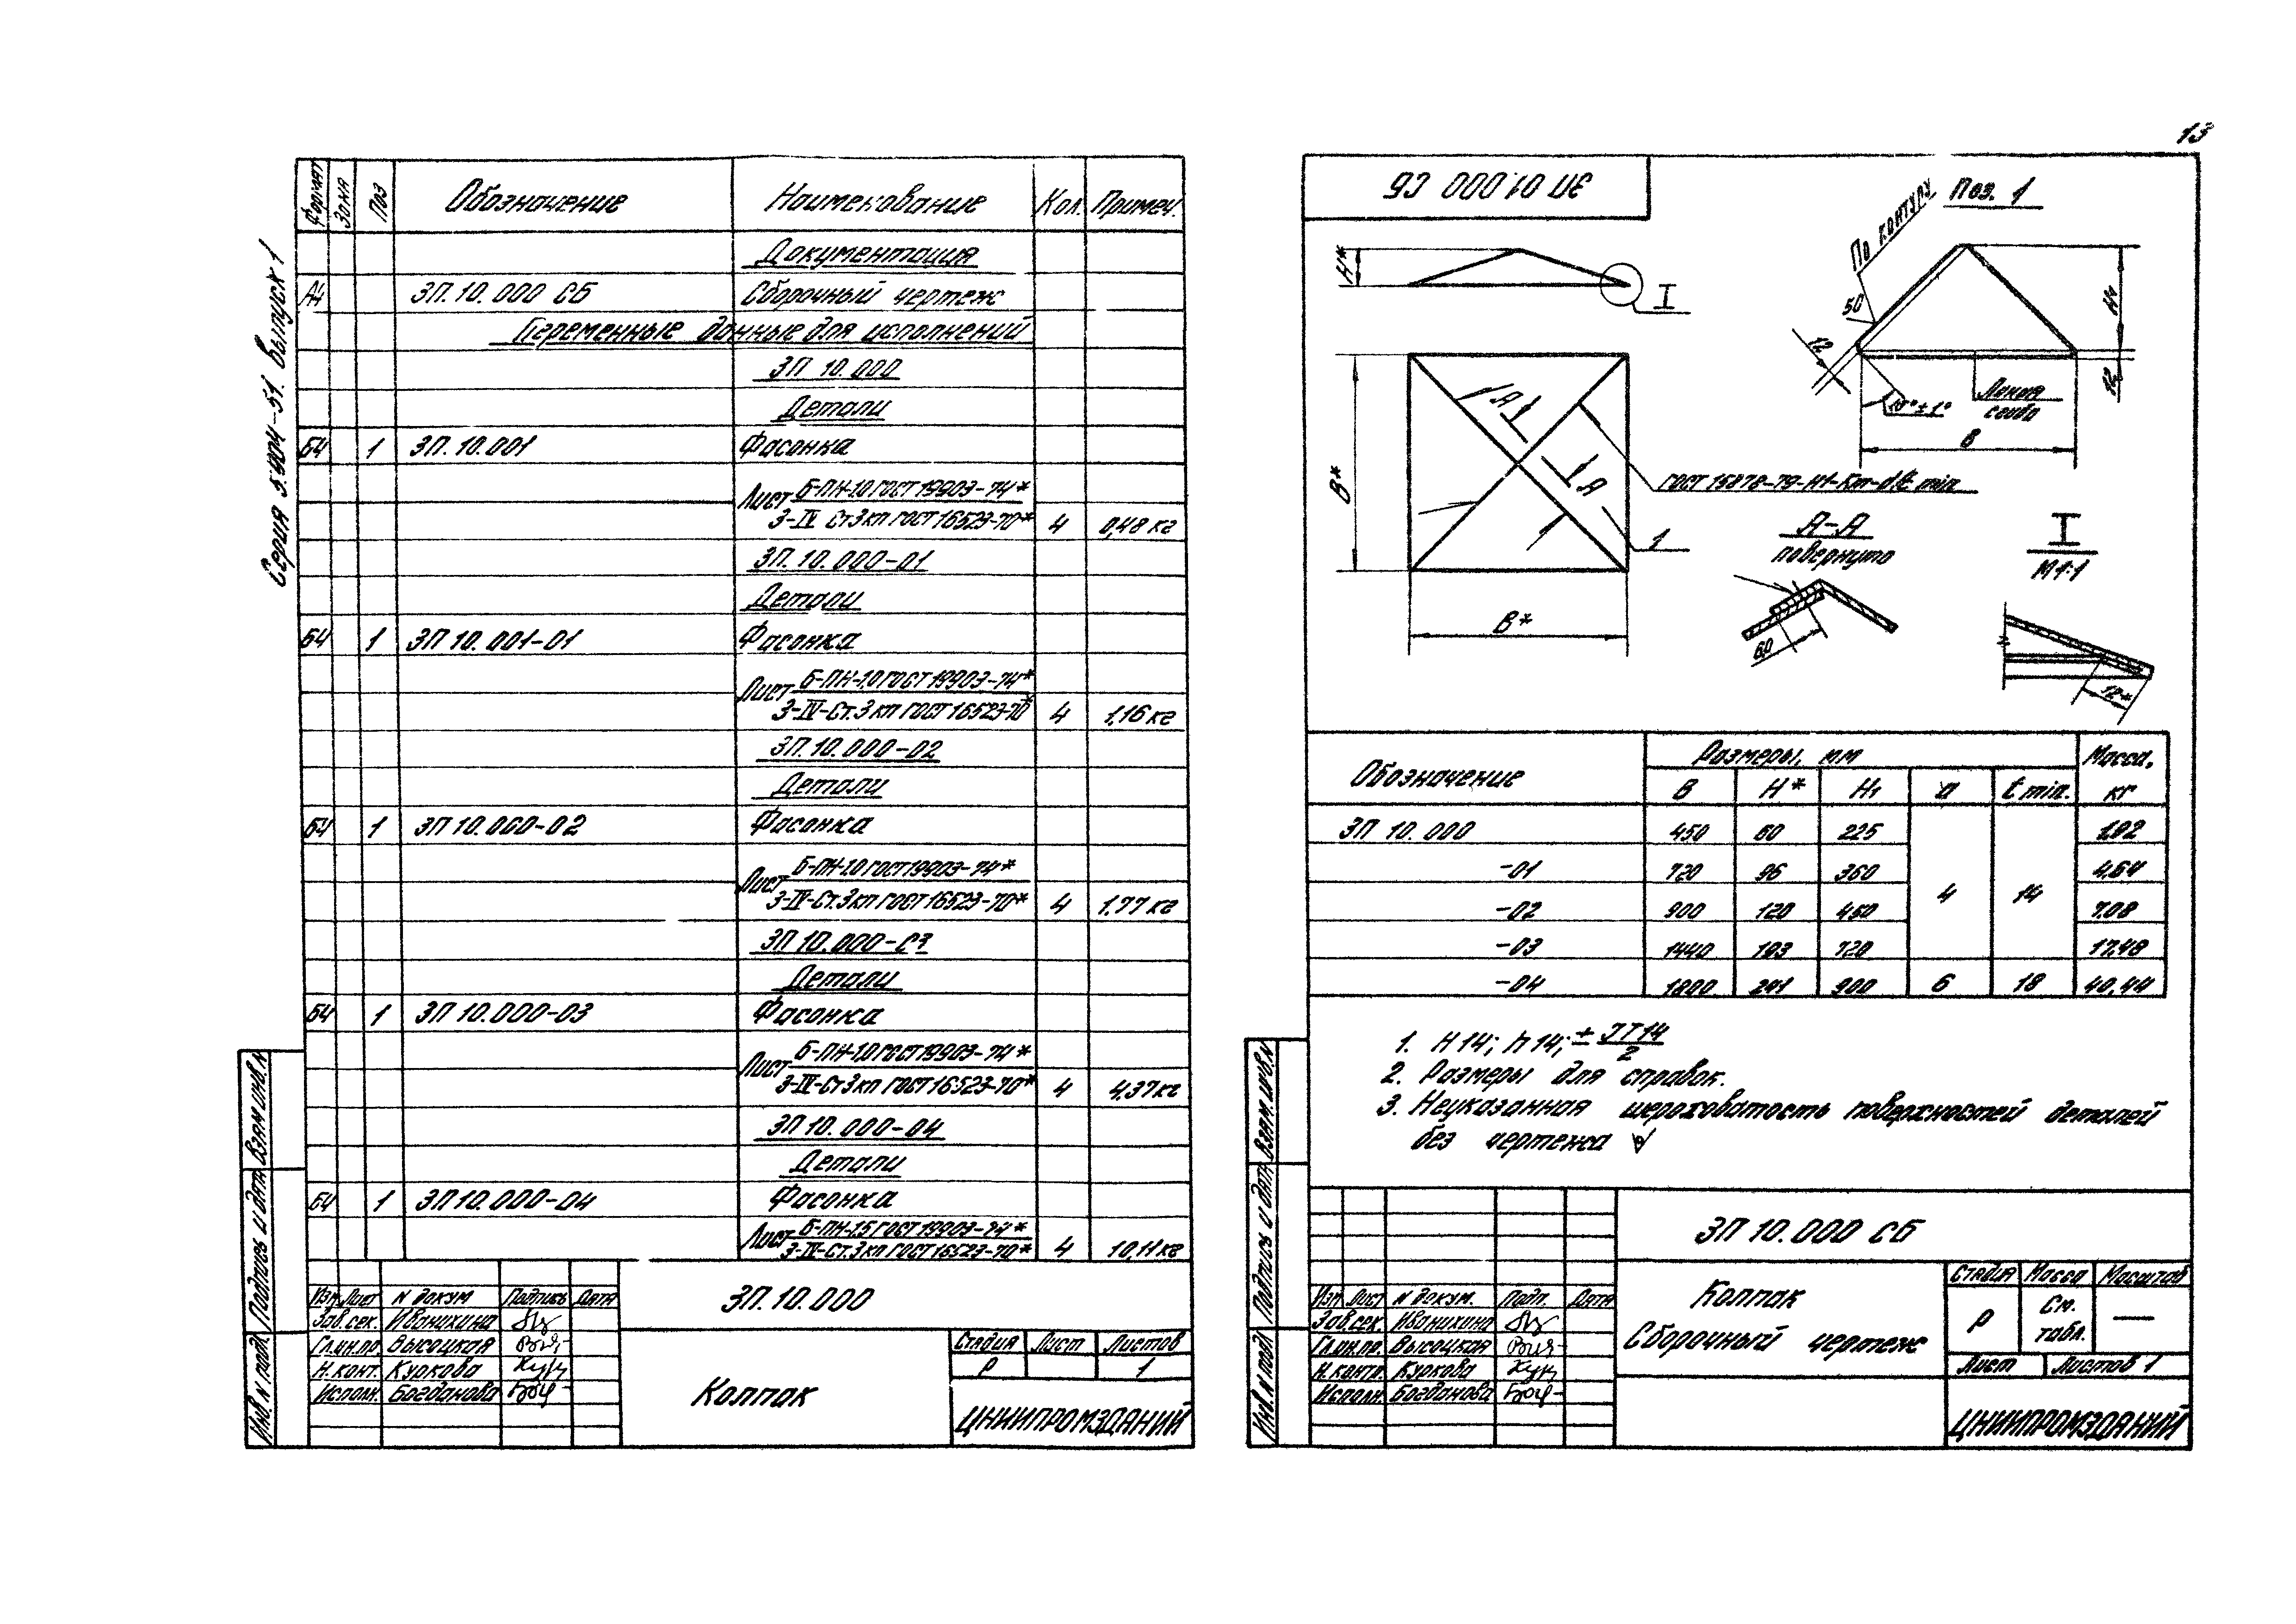 13
Серия 5.904-51. Выпуск 1
Формат Зона Поз Обозначение Наименование Кол. Примеч.
Документация
А4 ЗП.10.000 СБ Сборочный чертеж
Переменные данные для исполнений
ЗП 10.000
Детали
БЧ 1 ЗП.10.001 Фасонка
Лист Б-ПН-1,0 ГОСТ 19903-74*
3-IV Ст3кп ГОСТ 16523-70* 4 0,48 кг
ЗП.10.000-01
Детали
БЧ 1 ЗП 10.001-01 Фасонка
Лист Б-ПН-1,0 ГОСТ 19903-74*
3-IV-Ст.3кп ГОСТ 16523-70* 4 1,16 кг
ЗП.10.000-02
Детали
БЧ 1 ЗП 10.000-02 Фасонка
Лист Б-ПН-1,0 ГОСТ 19903-74*
3-IV-Ст.3кп ГОСТ 16523-70* 4 1,77 кг
ЗП 10.000-03
Детали
БЧ 1 ЗП 10.000-03 Фасонка
Лист Б-ПН-1,0 ГОСТ 19903-74*
3-IV-Ст3кп ГОСТ 16523-70* 4 4,37 кг
ЗП 10.000-04
Детали
БЧ 1 ЗП 10.000-04 Фасонка
Лист Б-ПН-1,5 ГОСТ 19903-74*
3-IV-Ст.3кп ГОСТ 16523-70* 4 10,11 кг
Инв. N подл. Подпись и дата Взам инв. N
Изм Лист N докум Подпись Дата
Зав.сек. Иванихина
Гл.ин.пр Высоцкая
Н.конт. Куркова
Исполн. Богданова
ЗП.10.000
Колпак
Стадия Лист Листов
Р 1
ЦНИИПРОМЗДАНИЙ
ЗП 01.000 СБ
Поз. 1
По контуру
H*
I
50
12
H₁
12
45°±1°
Линия
сгиба
В
В*
В*
А
А
ГОСТ 15878-79-Н1-Кт-d,t min
1
А-А
повернуто
60
I
М 1:1
12*
Обозначение Размеры, мм Масса, кг
В H* H₁ d t min.
ЗП 10.000 450 60 225 4 14 1,92
-01 720 96 360 4,64
-02 900 120 450 7,08
-03 1440 193 720 17,48
-04 1800 241 900 6 18 40,44
1. H14; h14; ± IT14/2
2. Размеры для справок.
3. Неуказанная шероховатость поверхностей деталей
без чертежа
Инв. N подл Подпись и дата Взам. инв. N
Изм Лист N докум. Подп. Дата
Зав.сек. Иванихина
Гл.ин.пр. Высоцкая
Н.контр. Куркова
Исполн. Богданова
ЗП 10.000 СБ
Колпак
Сборочный чертеж
Стадия Масса Масштаб
Р См. табл. —
Лист Листов 1
ЦНИИПРОМЗДАНИЙ